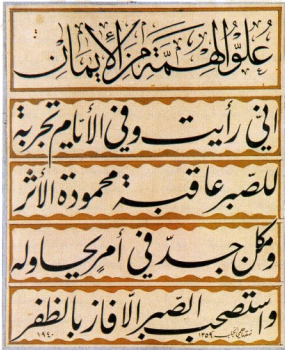 علوّ الهمّة من الإيمان
اني رأيت وفي الأيام تجربة
للصبر عاقبة محمودة الأثر
وكل جدّ في أمر يحاوله
وستصحب الصّبر الا فاز بالظفر
١٩٤٠ ١٣٥٩